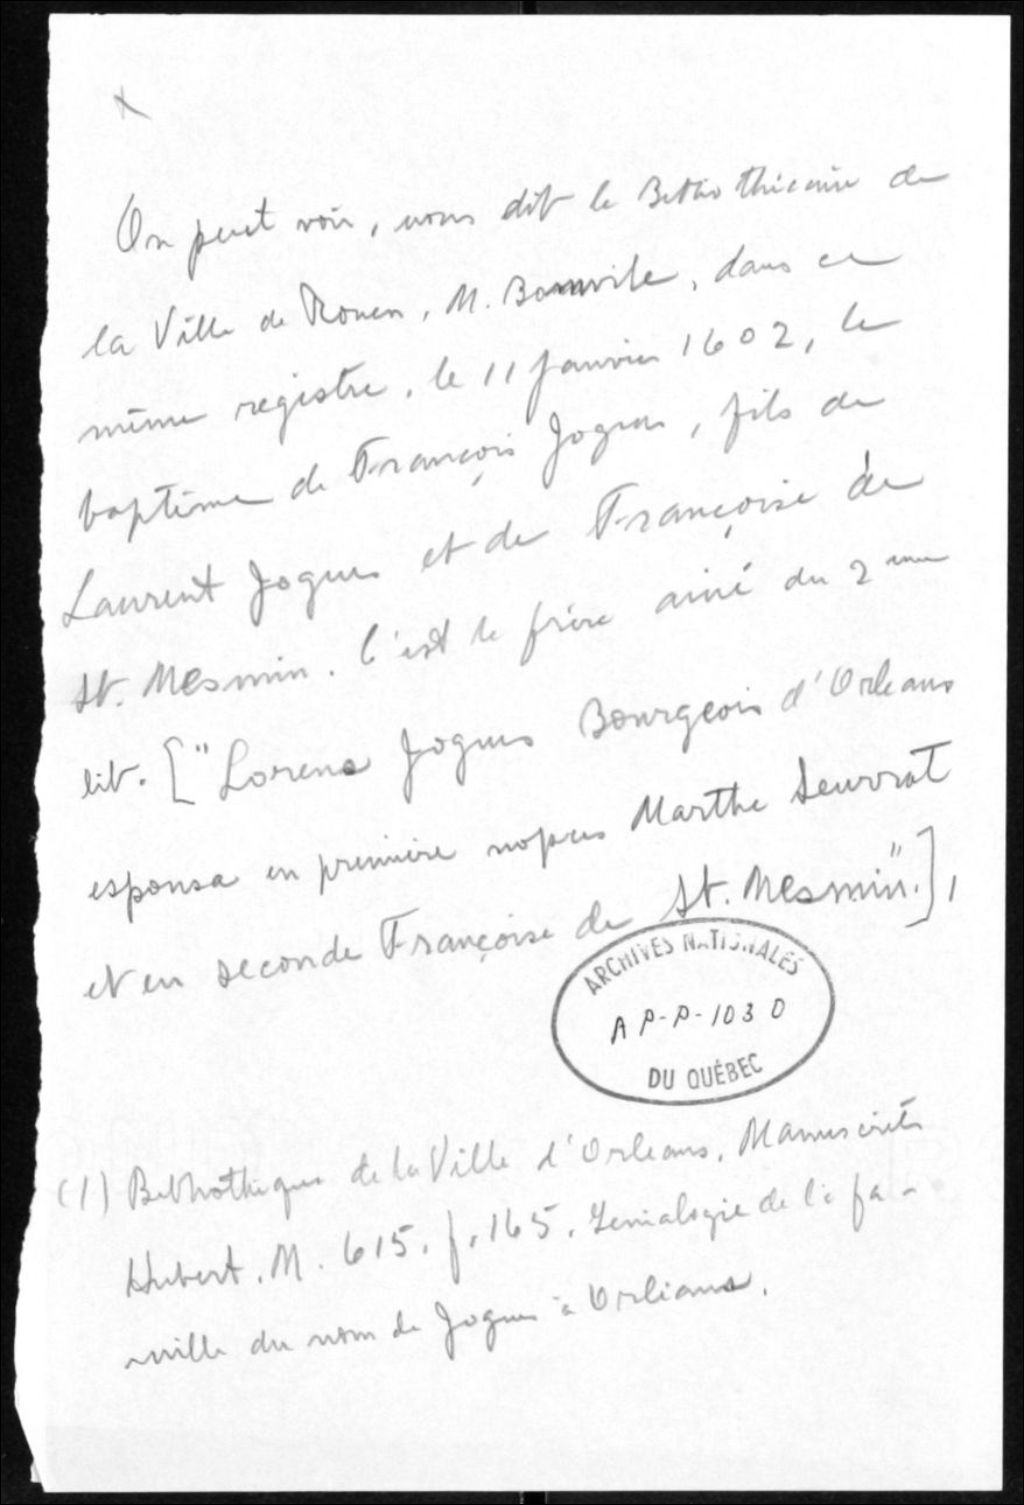 x
On peut voir, nous dit le Bibliothécaire de
la Ville de Rouen, M. Bonnville, dans ce
même registre, le 11 Janvier 1602, le
baptême de François Jogues, fils de
Laurent Jogues et de Françoise de
St. Mesmin. C'est le frère ainé du 2 ème
lit. ["Lorens Jogues Bourgeois d'Orleans
esponsa en première nopces Marthe Seurrat
et en seconde Françoise de St. Mesmin."],
ARCHIVES NATIONALES
A P-P-103 D
DU QUÉBEC
(1) Bibliothèque de la Ville d'Orleans, Manuscrits
Hubert, M. 615, f. 165, Genialogie de la fa-
mille du nom de Jogues à Orlians.